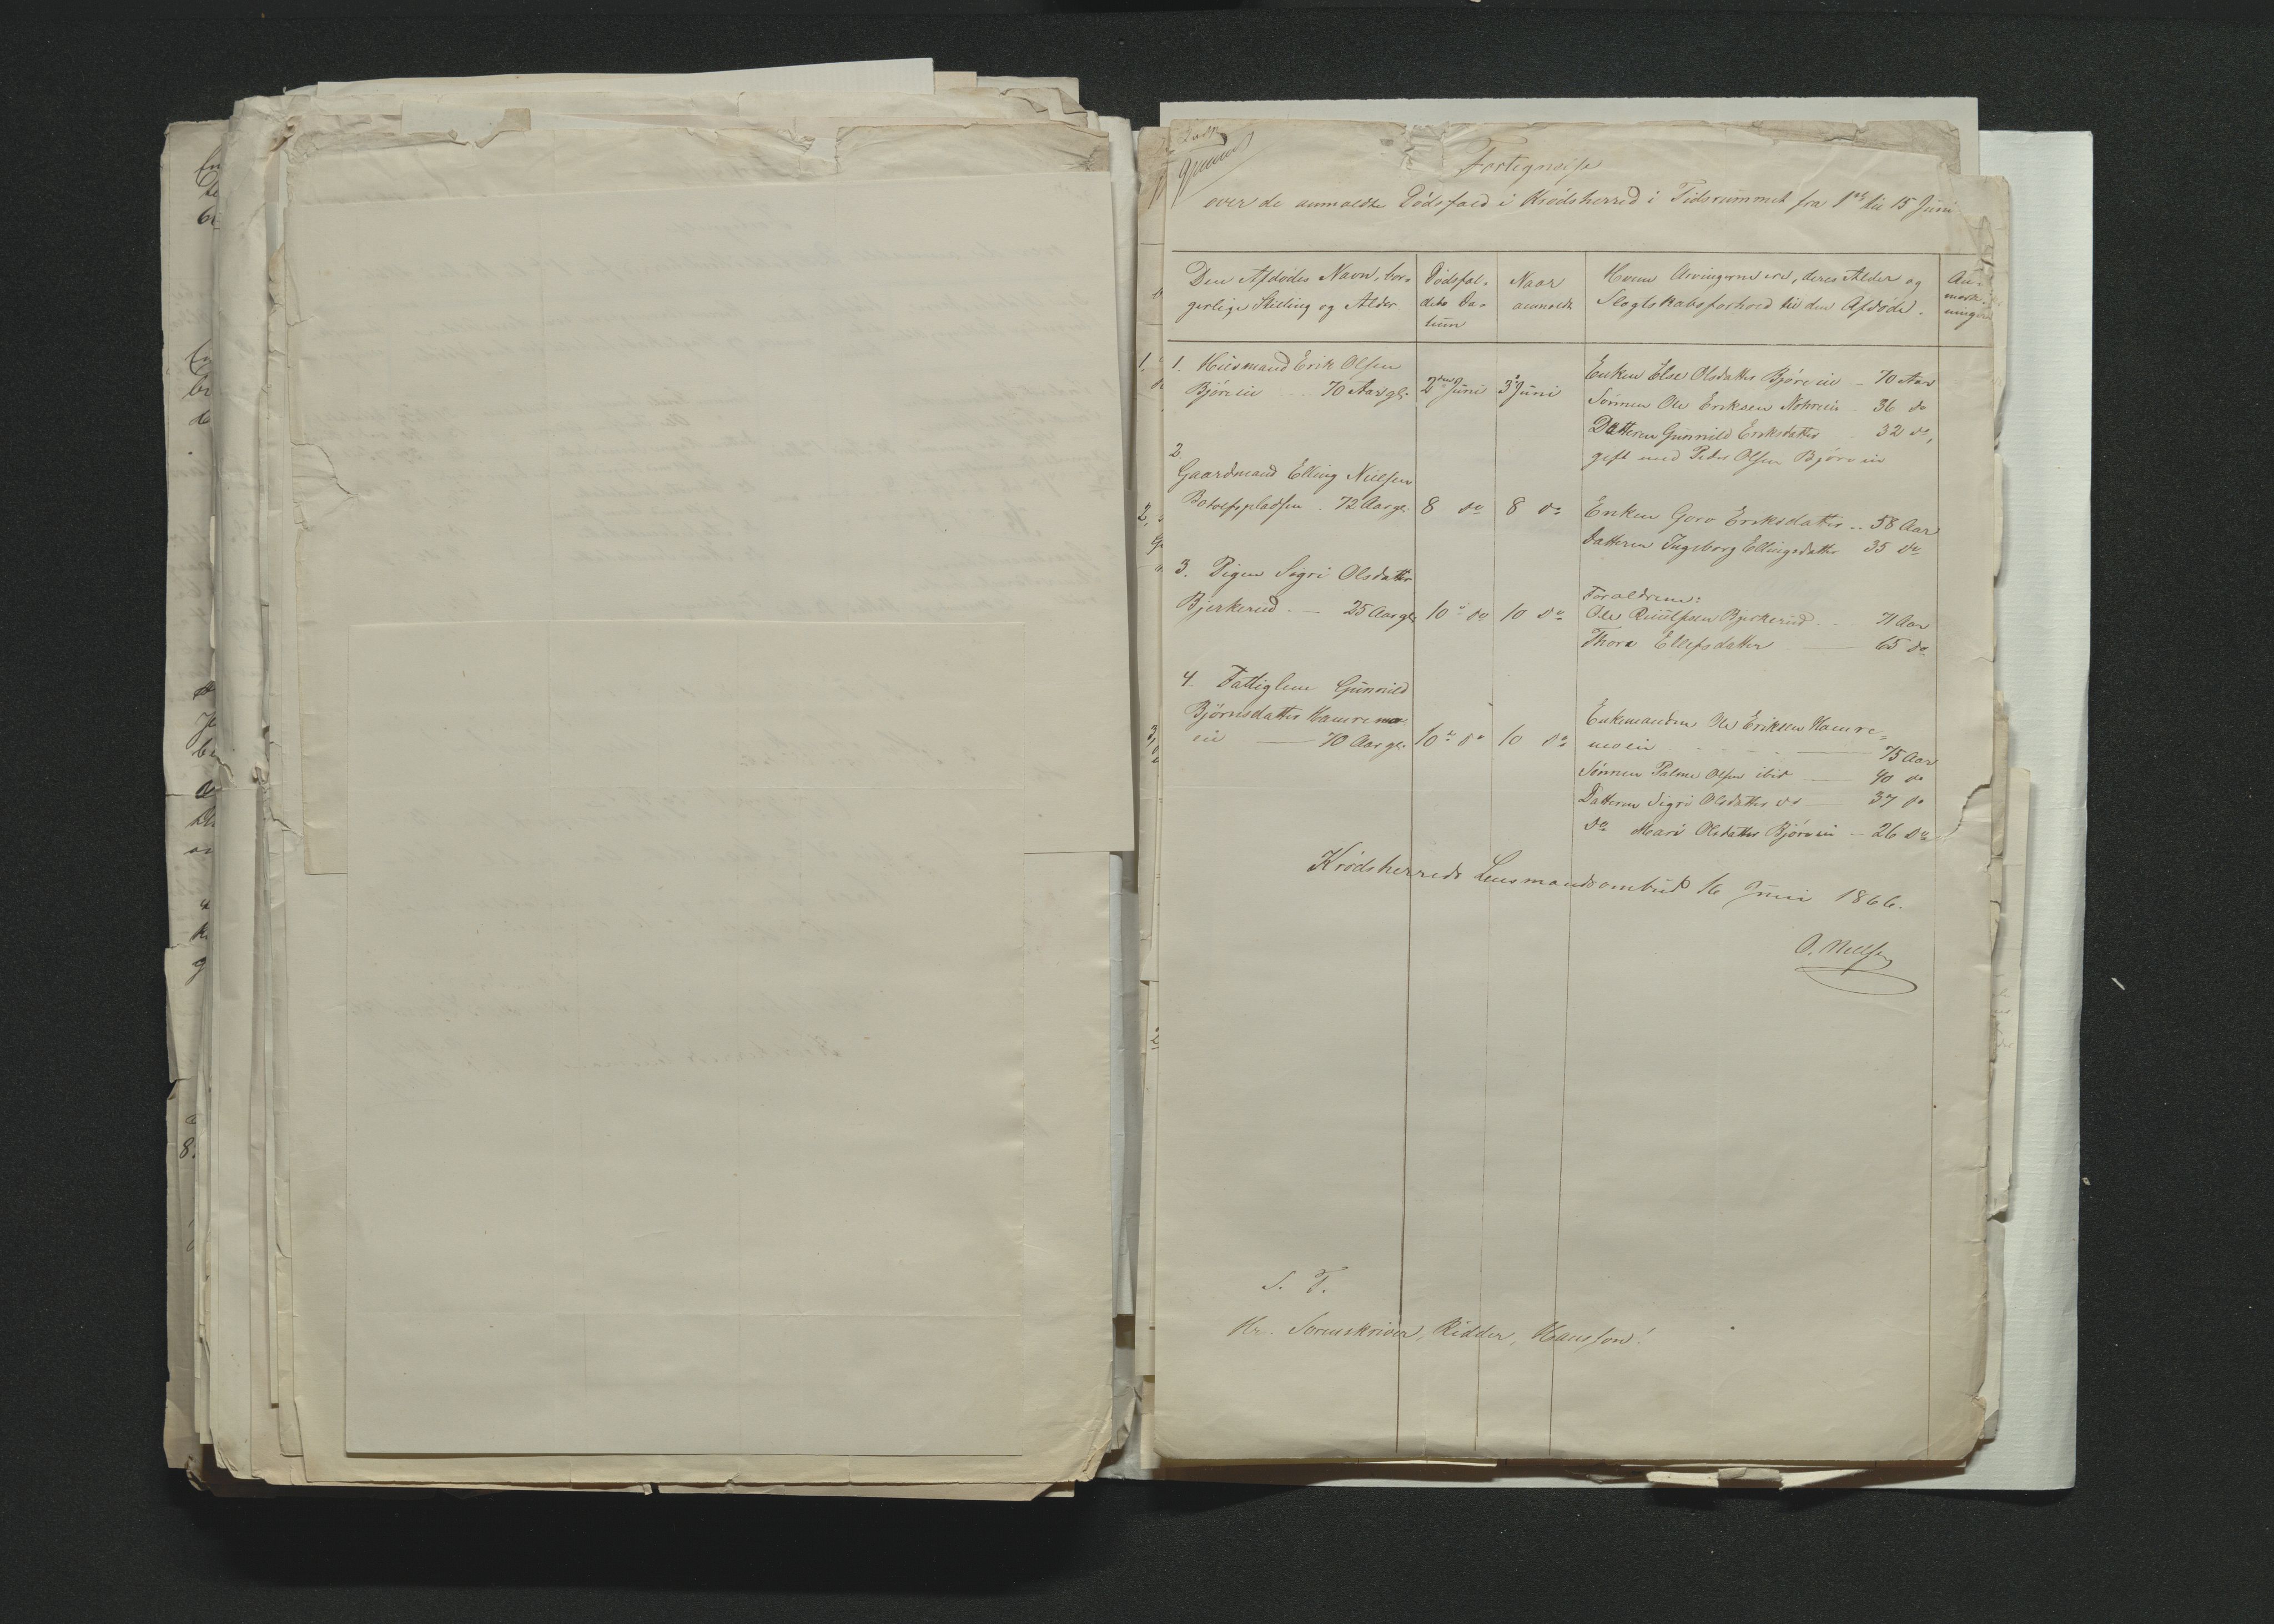 Fortegnelse
over de anmeldte Dödsfald i Krödsherred i Tidsrummet fra 1ste til 15 Juni
Den Afdödes Navn, bor-
gerlige Stilling og Alder
Dödsfal-
dets Da-
tum
Naar
anmeldt
Hvem Arvingerne ere, deres Alder og
Slægtskabsforhold til den Afdöde.
An-
mærk-
ninger
1. Huusmand Erik Olsen
Björeie 70 Aar gl.
2den Juni
3die Juni
Enken Else Olsdatter Björeie 70 Aar
Sönnen Ole Eriksen 36 do
Datteren Gunnild Eriksdatter 32 do,
gift med Peder Olsen Björeie
2.
Gaardmand Elling Nielsen
Botolfspladsen 72 Aar gl.
8 do
8 do
Enken Goro Eriksdatter 58 Aar
Datteren Ingeborg Ellingsdatter 35 do
3. Pigen Sigri Olsdatter
Bjerkerud — 25 Aar gl.
10 do
10 do
Forældrene:
Ole Bjerkerud 71 Aar
Thora Ellefsdatter — 65 do
4. Fattiglem Gunnild
Björnsdatter Hamremo-
eie — 70 Aar gl.
10 do
10 do
Enkemanden Ole Eriksen Hamre-
moeie — 75 Aar
Sönnen Palme Olsen ibid — 40 do
Datteren Sigri Olsdatter do — 37 do
do Mari Olsdatter Björeie — 26 do
Krödsherreds Lensmandsombud 16 Juni 1866.
O. Nielsen
S. T.
Hr. Sorenskriver, Ridder, Hansson!